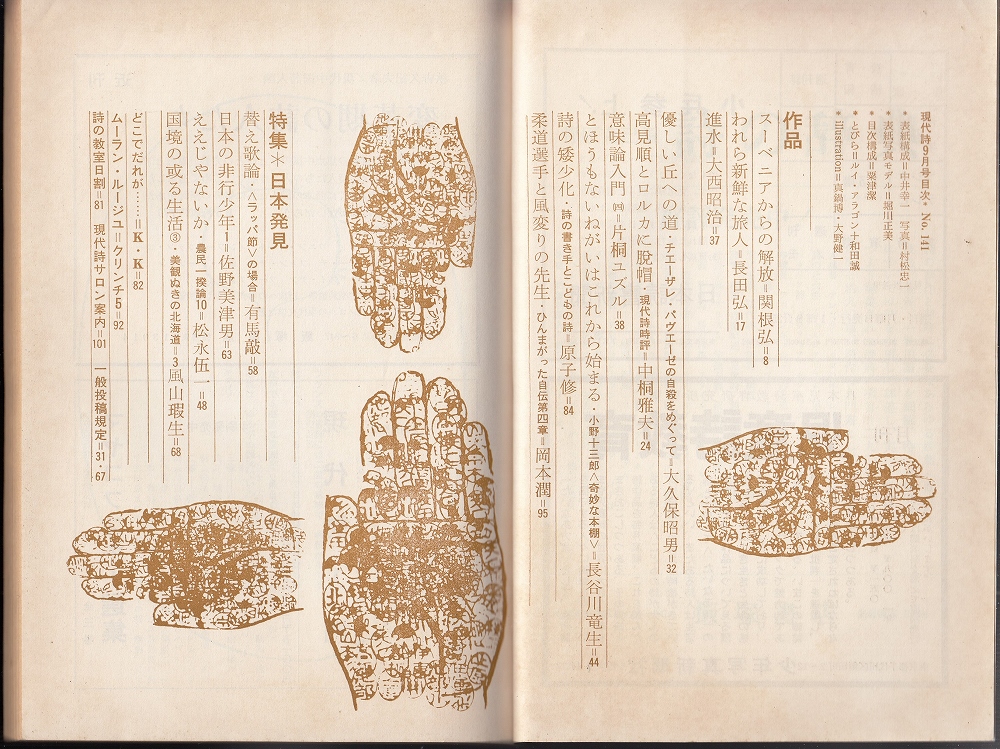 現代詩9月号目次* No. 141
*表紙構成=中井幸一 写真=村松忠一
*表紙写真モデル=堀川正美
*目次構成=粟津潔
*とびら=ルイ・アラゴン+和田誠
*illustration=真鍋博・大野健一
作品
スーベニアからの解放=関根弘=8
われら新鮮な旅人=長田弘=17
進水=大西昭治=37
優しい丘への道・チエーザレ・パヴエーゼの自殺をめぐって=大久保昭男=32
高見順とロルカに脱帽・現代詩時評=中桐雅夫=24
意味論入門㈣=片桐ユズル=38
とほうもないねがいはこれから始まる・小野十三郎〈奇妙な本棚〉=長谷川竜生=44
詩の矮少化・詩の書き手とこどもの詩=原子修=84
柔道選手と風変りの先生・ひんまがった自伝第四章=岡本潤=95
特集*日本発見
替え歌論・〈ラッパ節〉の場合=有馬敲=58
日本の非行少年1=佐野美津男=63
ええじやないか・農民一揆論10=松永伍一=48
国境の或る生活③・美観ぬきの北海道=3風山瑕生=68
どこでだれが……=K・K=82
ムーラン・ルージュ=クリンチ5=92
詩の教室日割=81 現代詩サロン案内=101 一般投稿規定=31・67